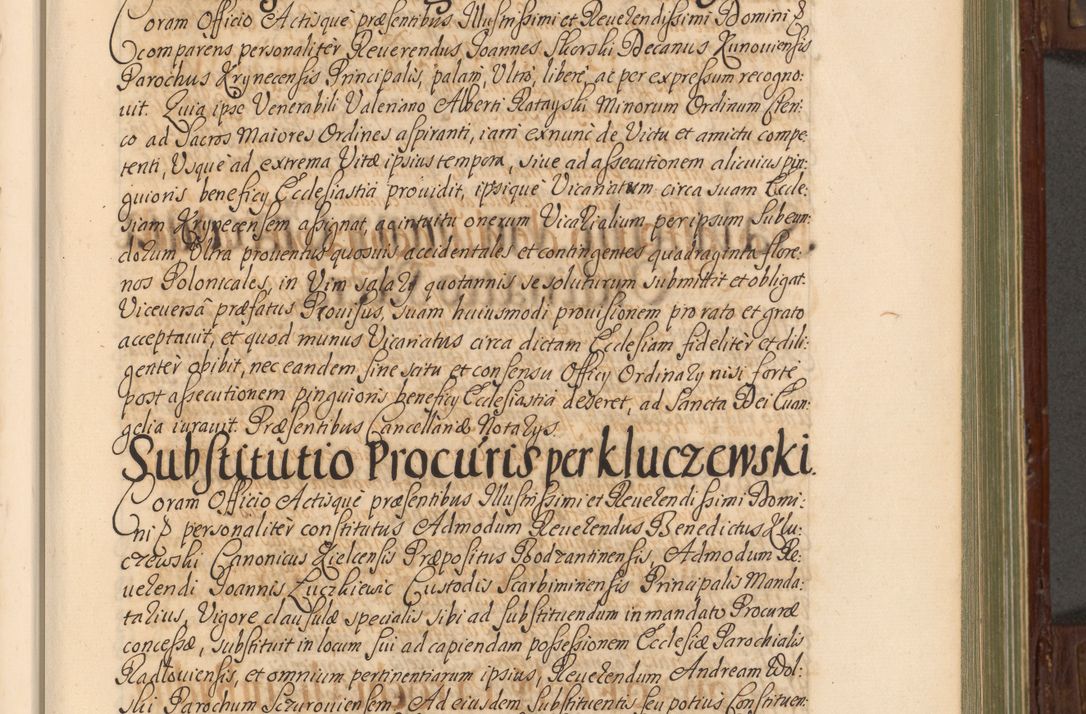 Coram Officio Actisque præsentibus Illustrissimi et Reverendissimi Domini &
comparens personaliter Reverendus Joannes Skorski Decanus Kunoviensis
Parochus Krynecensis Principalis, palam, Ultro, libere, ac per expressum recogno:
uit. Quia ipse Venerabili Valeriano Alberti Ratayski Minorum Ordinum Cleri:
co ad Sacros Maiores Ordines aspiranti, iam exnunc de Victu et amictu compe:
tenti, Usque ad extrema Vitæ ipsius tempora, siue ad assecutionem alicuius pin:
guioris beneficy Ecclesiastici prouidit, ipsique Vicariatum circa suam Eccle:
siam Krynecensem assignat, ac intuitu onerum Vicarialium per ipsum Subeun:
dorum Ultra prouentus quosuis accidentales et contingentes quadraginta flore:
nos Polonicales, in Vim salary quotannis se soluturum submittit et obligat.
Viceuersâ præfatus Prouisus, suam huiusmodi prouisionem pro rato et grato
acceptauit, et quod munus Vicariatus circa dictam Ecclesiam fideliter et dili:
genter obibit, nec eandem sine scitu et consensu Officy Ordinary nisi forte
post assecutionem pinguioris beneficy Ecclesiastici desèret, ad Sancta Dei Euan:
gelia iurauit. Præsentibus Cancellariæ Notarys.
Substitutio Procuris per Kluczewski.
Coram Officio Actisque præsentibus Illustrissimi et Reuerendissimi Domi:
ni & personaliter constitutus Admodum Reuerendus Benedictus Klu:
czewski Canonicus Kielcensis Præpositus Bodzantinensis, Admodum Re:
uerendi Joannis Zuczkiewic Custodis Scarbimirensis Principalis Manda:
tarius, Vigore clausulæ specialis sibi ad substituendum in mandato Procuræ
concessæ, substituit in locum sui ad capiendam possessionem Ecclesiæ Parochialis
Radłouiensis, et omnium pertinentiarum ipsius, Reuerendum Andream Wol:
ski Parochum Sczurouiensem. Ad eiusdem Substituentis seu potius Constituen: